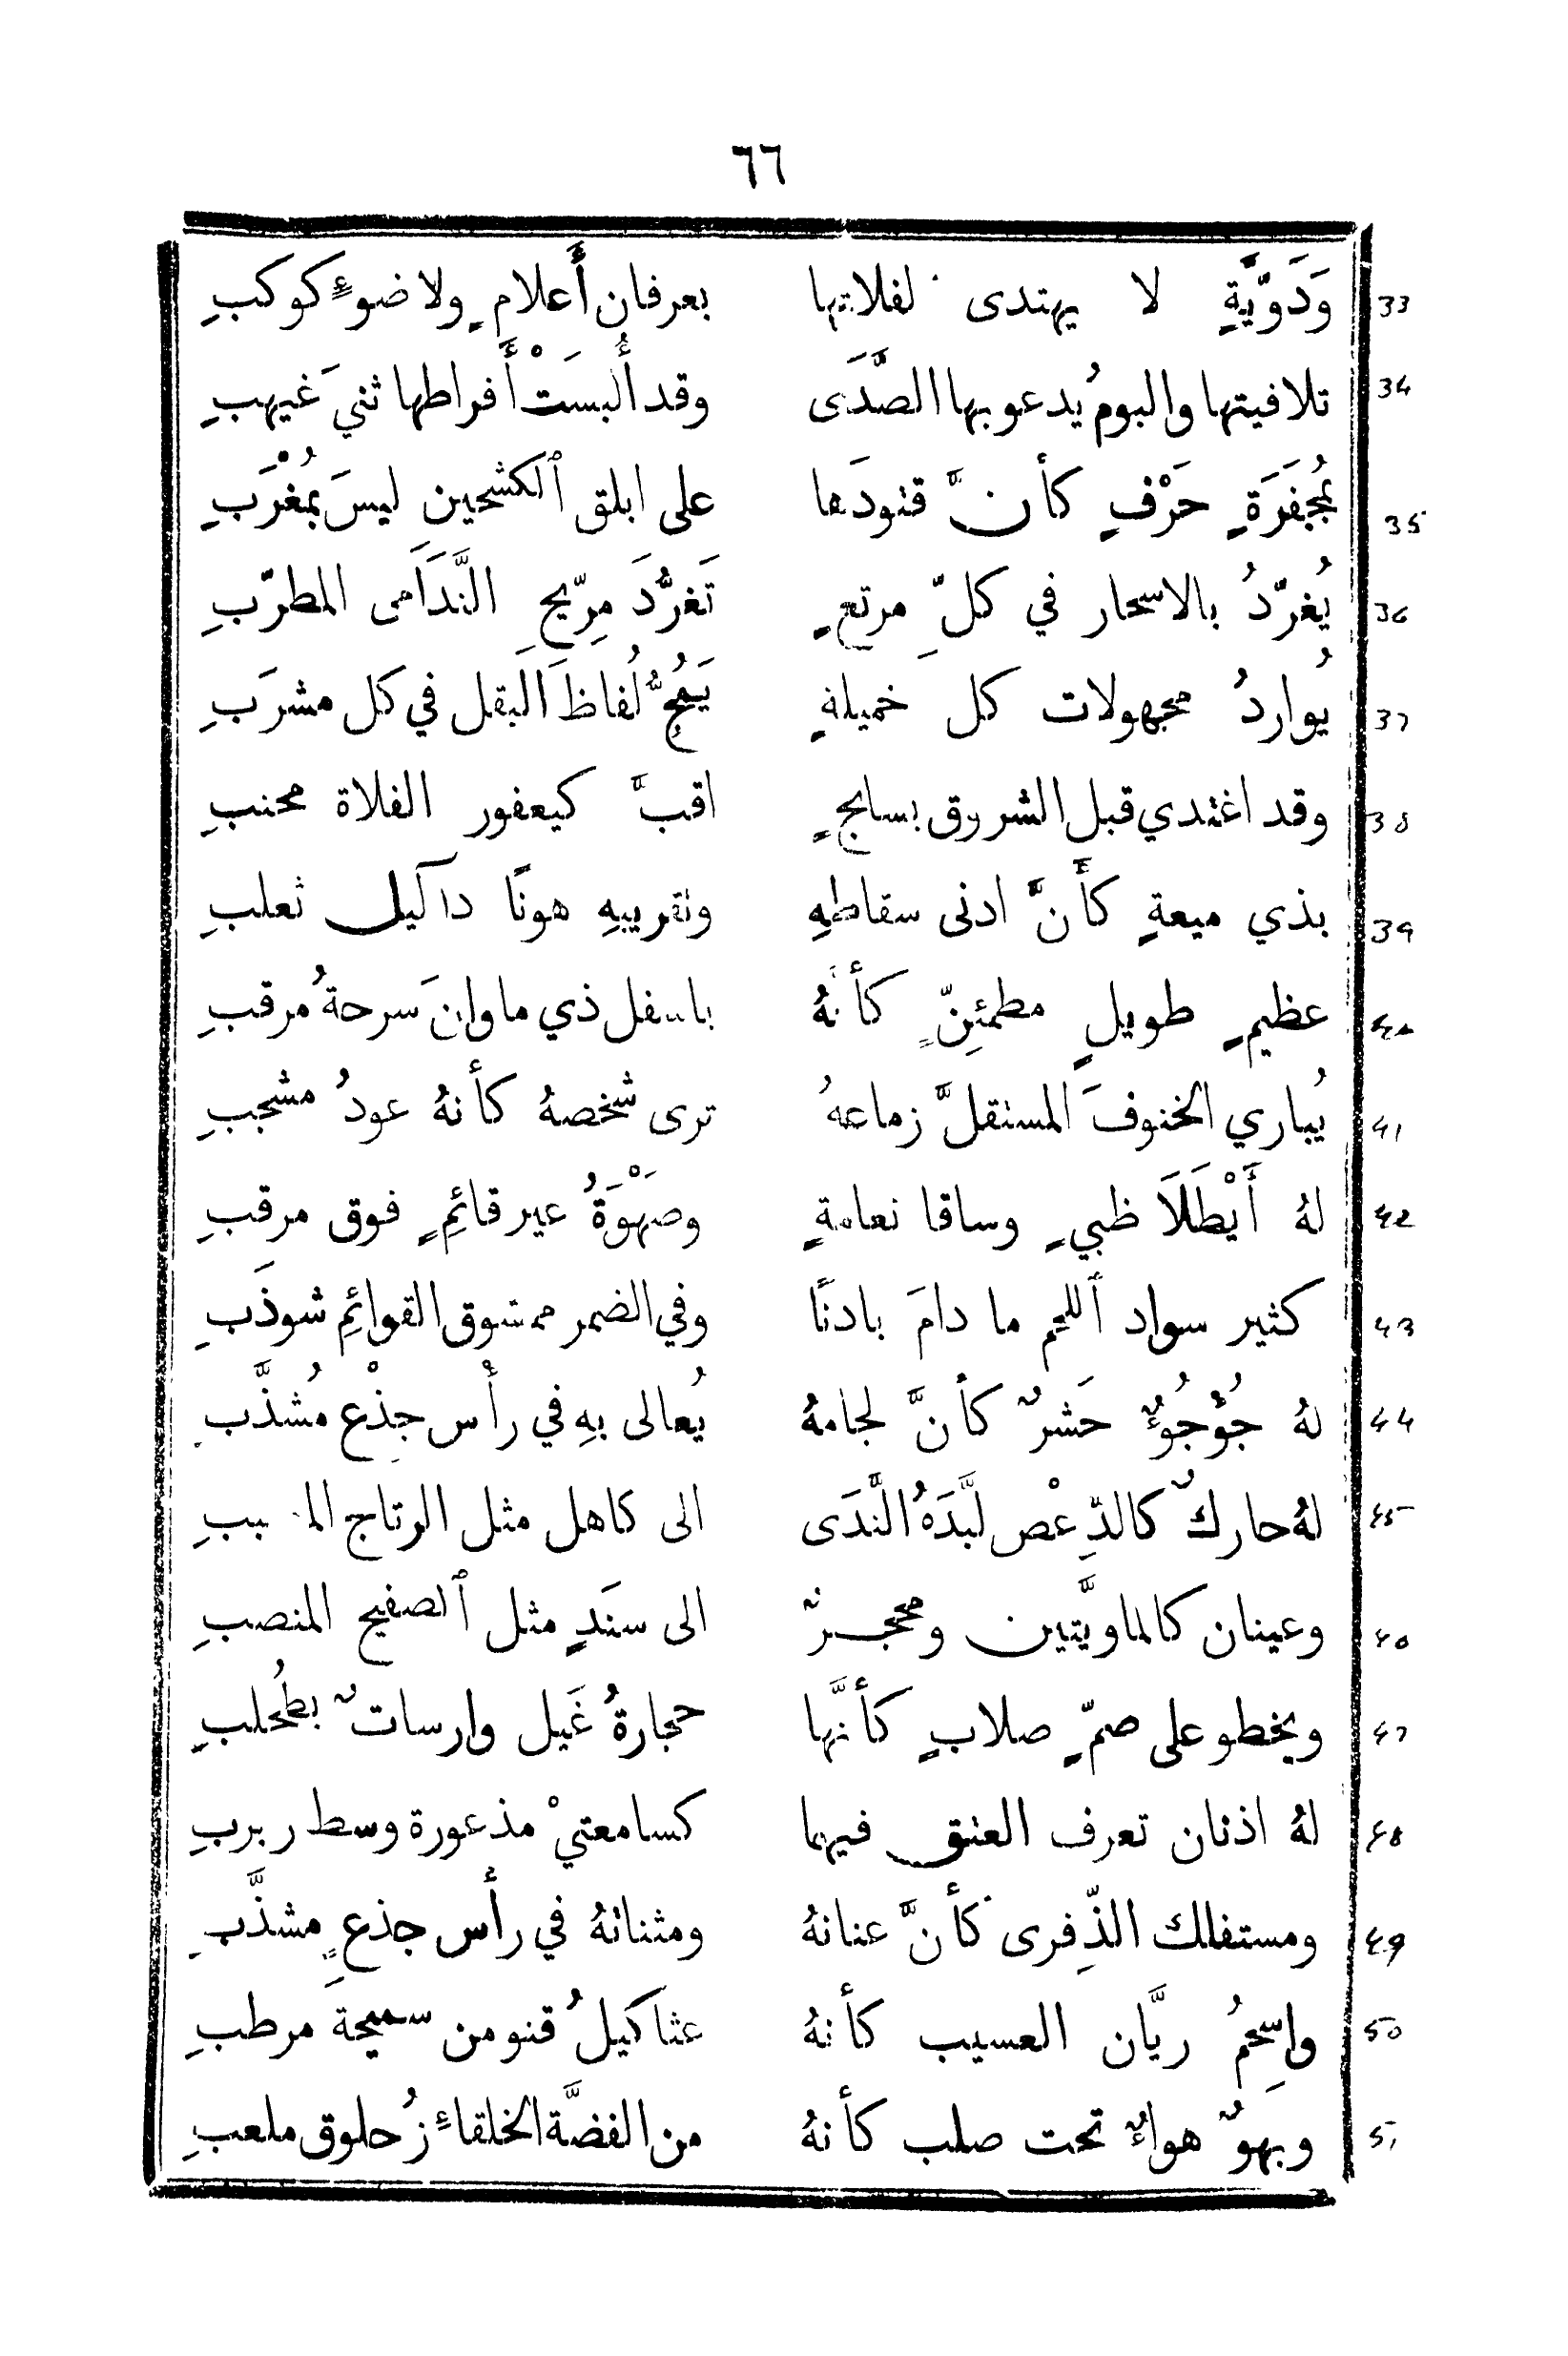 ٦٦
33 وَدَوِّيَّةٍ لا يهتدى لفلاتها بعرفان أَعلامٍ ولا ضوءِ كوكبِ
34 تلافيتها والبومُ يدعو بها الصَّدَى وقد أُلبسَتْ أَفراطها ثنيَ غيهبِ
35 بمُجفَرَةٍ حَرْفٍ كأنَّ قتودَها على ابلق ٱلكشحين ليسَ بمُغْرَبِ
36 يُغرّدُ بالاسحار في كلِّ مرتعٍ تَغرُّدَ مِرّيحِ النَّدَامَى المطرّبِ
37 يُواردُ مجهولات كل خميلةٍ يَمُجُّ لُفاظَ البَقل في كل مشرَبِ
38 وقد اغتدي قبل الشروق بسابحٍ اقبَّ كيعفور الفلاة محنبِ
39 بذي ميعةٍ كأَنَّ ادنى سقاطهِ وتقريبهِ هونًا دآليل ثعلبِ
40 عظيمٍ طويلٍ مطمئِنٍّ كأنهُ باسفل ذي ماوانَ سرحةُ مرقبِ
41 يُباري الخنوفَ المستقلَّ زماعهُ ترى شخصهُ كأنهُ عودُ مشجبِ
42 لهُ أَيْطَلَا ظبيٍ وساقا نعامةٍ وصَهْوَةُ عير قائِمٍ فوق مرقبِ
43 كثير سواد ٱللحم ما دامَ بادنًا وفي الضمر ممشوق القوائِمِ شوذَبِ
44 لهُ جُؤْجُؤٌ حَشرٌ كأنَّ لجامهُ يُعالى بهِ في رأْس جِذْع مُشذَّبِ
45 لهُ حاركٌ كالدِّعْص لبَّدَهُ النَّدَى الى كاهل مثل الرتاج
40 وعينان كالماويَّتين ومحجرٌ الى سنَدٍ مثل ٱلصفيح المنصبِ
47 ويخطو على صمّ‍ٍ صلابٍ كأنَّها حجارةُ غَيل وارساتٌ بطُحلبِ
48 لهُ اذنان تعرف العتق فيهما كسامعتيْ مذعورة وسط ربربِ
49 ومستفلك الذِّفرى كأنَّ عنانهُ ومثناتهُ في رأْس جذعٍ مشذَّبِ
50 واسحِمُ ريَّان العسيب كأنهُ عثاكيلُ قنو من سميحةَ مرطبِ
51 وبهوٌ هواءٌ تحت صلب كأنهُ من الفضَّة الخلقاءِ زُحلوق ملعبِ